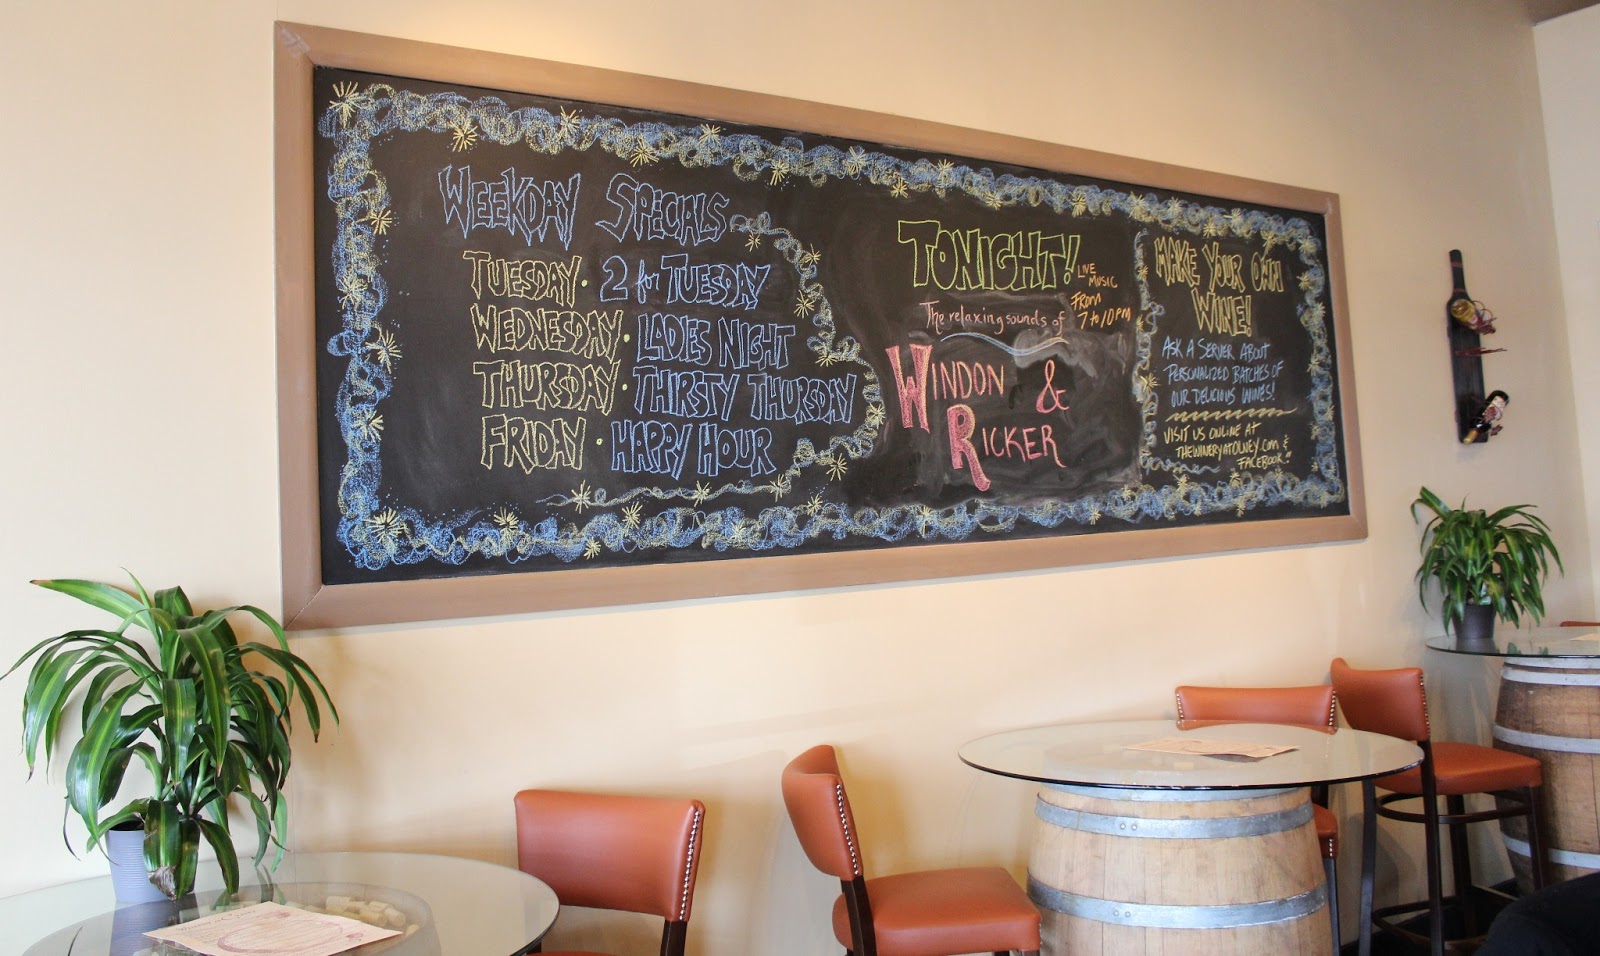 WEEKDAY SPECIALS
TUESDAY · 2 for TUESDAY
WEDNESDAY · LADIES NIGHT
THURSDAY · THIRSTY THURSDAY
FRIDAY · HAPPY HOUR
TONIGHT!
LIVE
MUSIC
FROM
7 to 10 PM
The relaxing sounds of
WINDON &
RICKER
MAKE YOUR OWN
WINE!
ASK A SERVER ABOUT
PERSONALIZED BATCHES OF
OUR DELICIOUS WINES!
VISIT US ONLINE AT
THEWINERYATOLNEY.COM &
FACEBOOK."